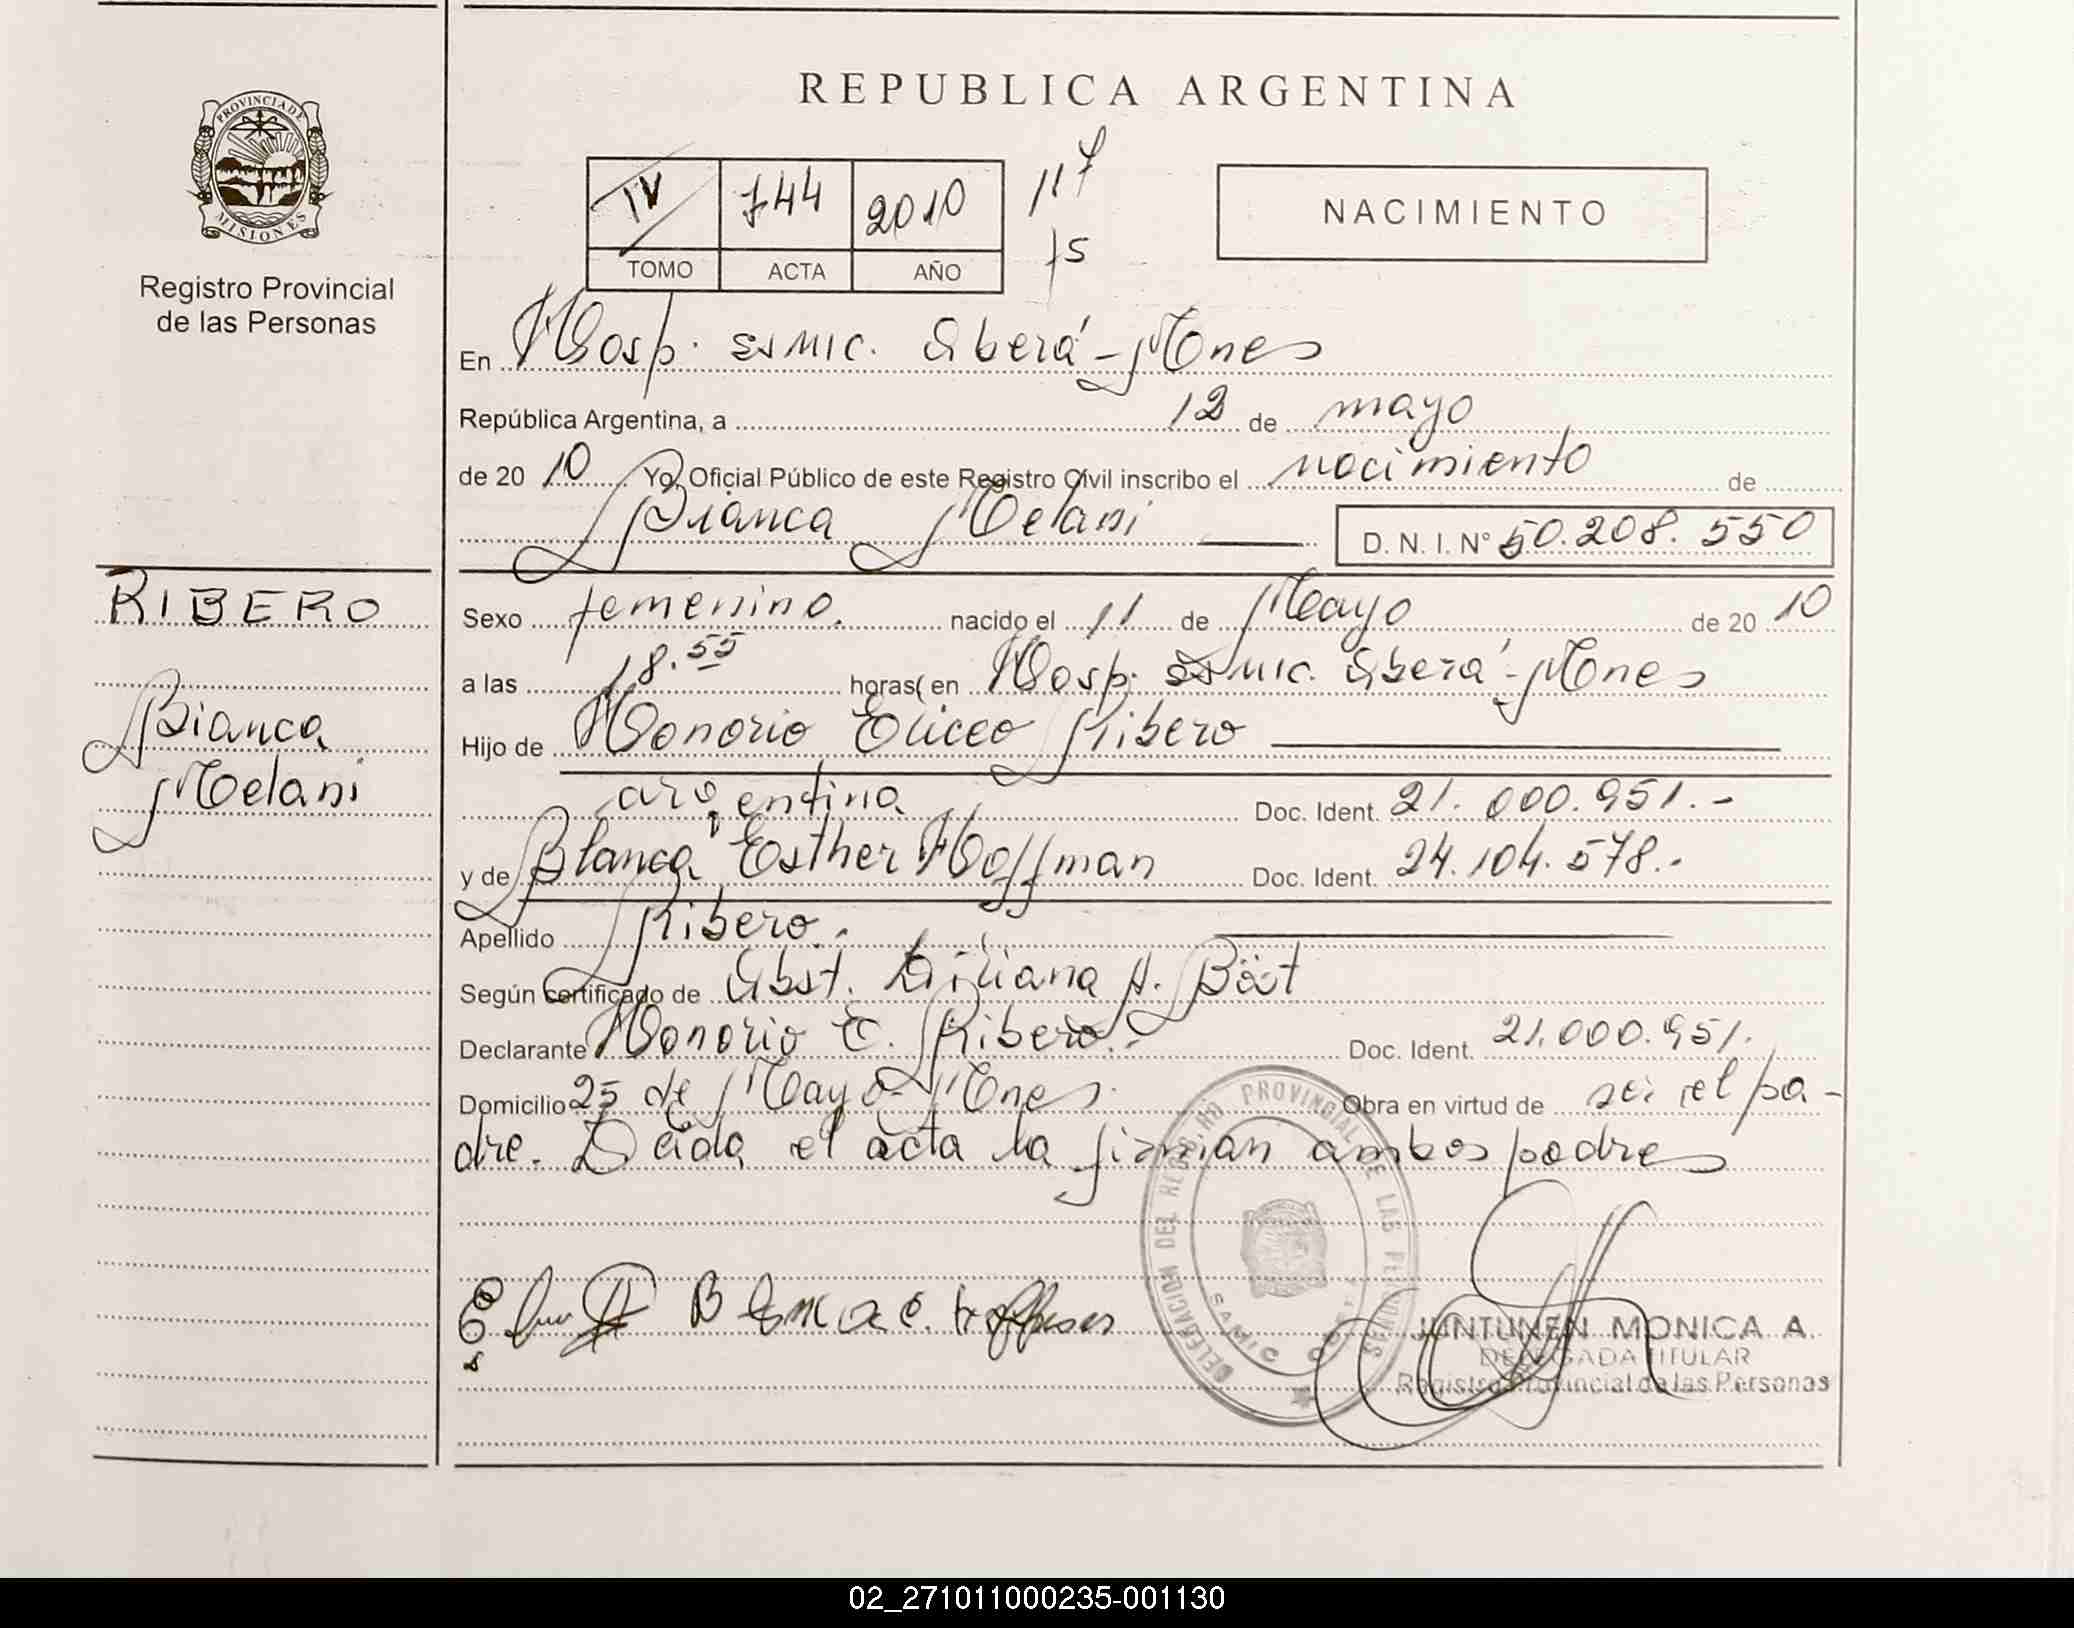 REPUBLICA ARGENTINA
PROVINCIA DE MISIONES
Registro Provincial
de las Personas
IV 744 2010 117
TOMO ACTA AÑO 75
NACIMIENTO
En Hosp. SAMIC. Oberá - Mnes
República Argentina, a 12 de mayo
de 20 10 Yo, Oficial Público de este Registro Civil inscribo el nacimiento de
Bianca Melani D. N. I. N° 50.208.550
RIBERO
Bianca
Melani
Sexo femenino. nacido el 11 de Mayo de 20 10
a las 18.55 horas( en Hosp. SAMIC. Oberá - Mnes
Hijo de Honorio Eliceo Ribero
argentina Doc. Ident. 21.000.951.-
y de Blanca Esther Hoffman Doc. Ident. 24.104.578.-
Apellido Ribero.-
Según certificado de Obst. Liliana A. Bäst
Declarante Honorio E. Ribero.- Doc. Ident. 21.000.951.
Domicilio 25 de Mayo - Mnes. Obra en virtud de ser el pa-
dre. Leida el acta la firman ambos padres
DELEGACION DEL REGISTRO PROVINCIAL DE LAS PERSONAS
SAMIC
JUNTUNEN MONICA A.
DELEGADA TITULAR
Registro Provincial de las Personas
02_271011000235-001130